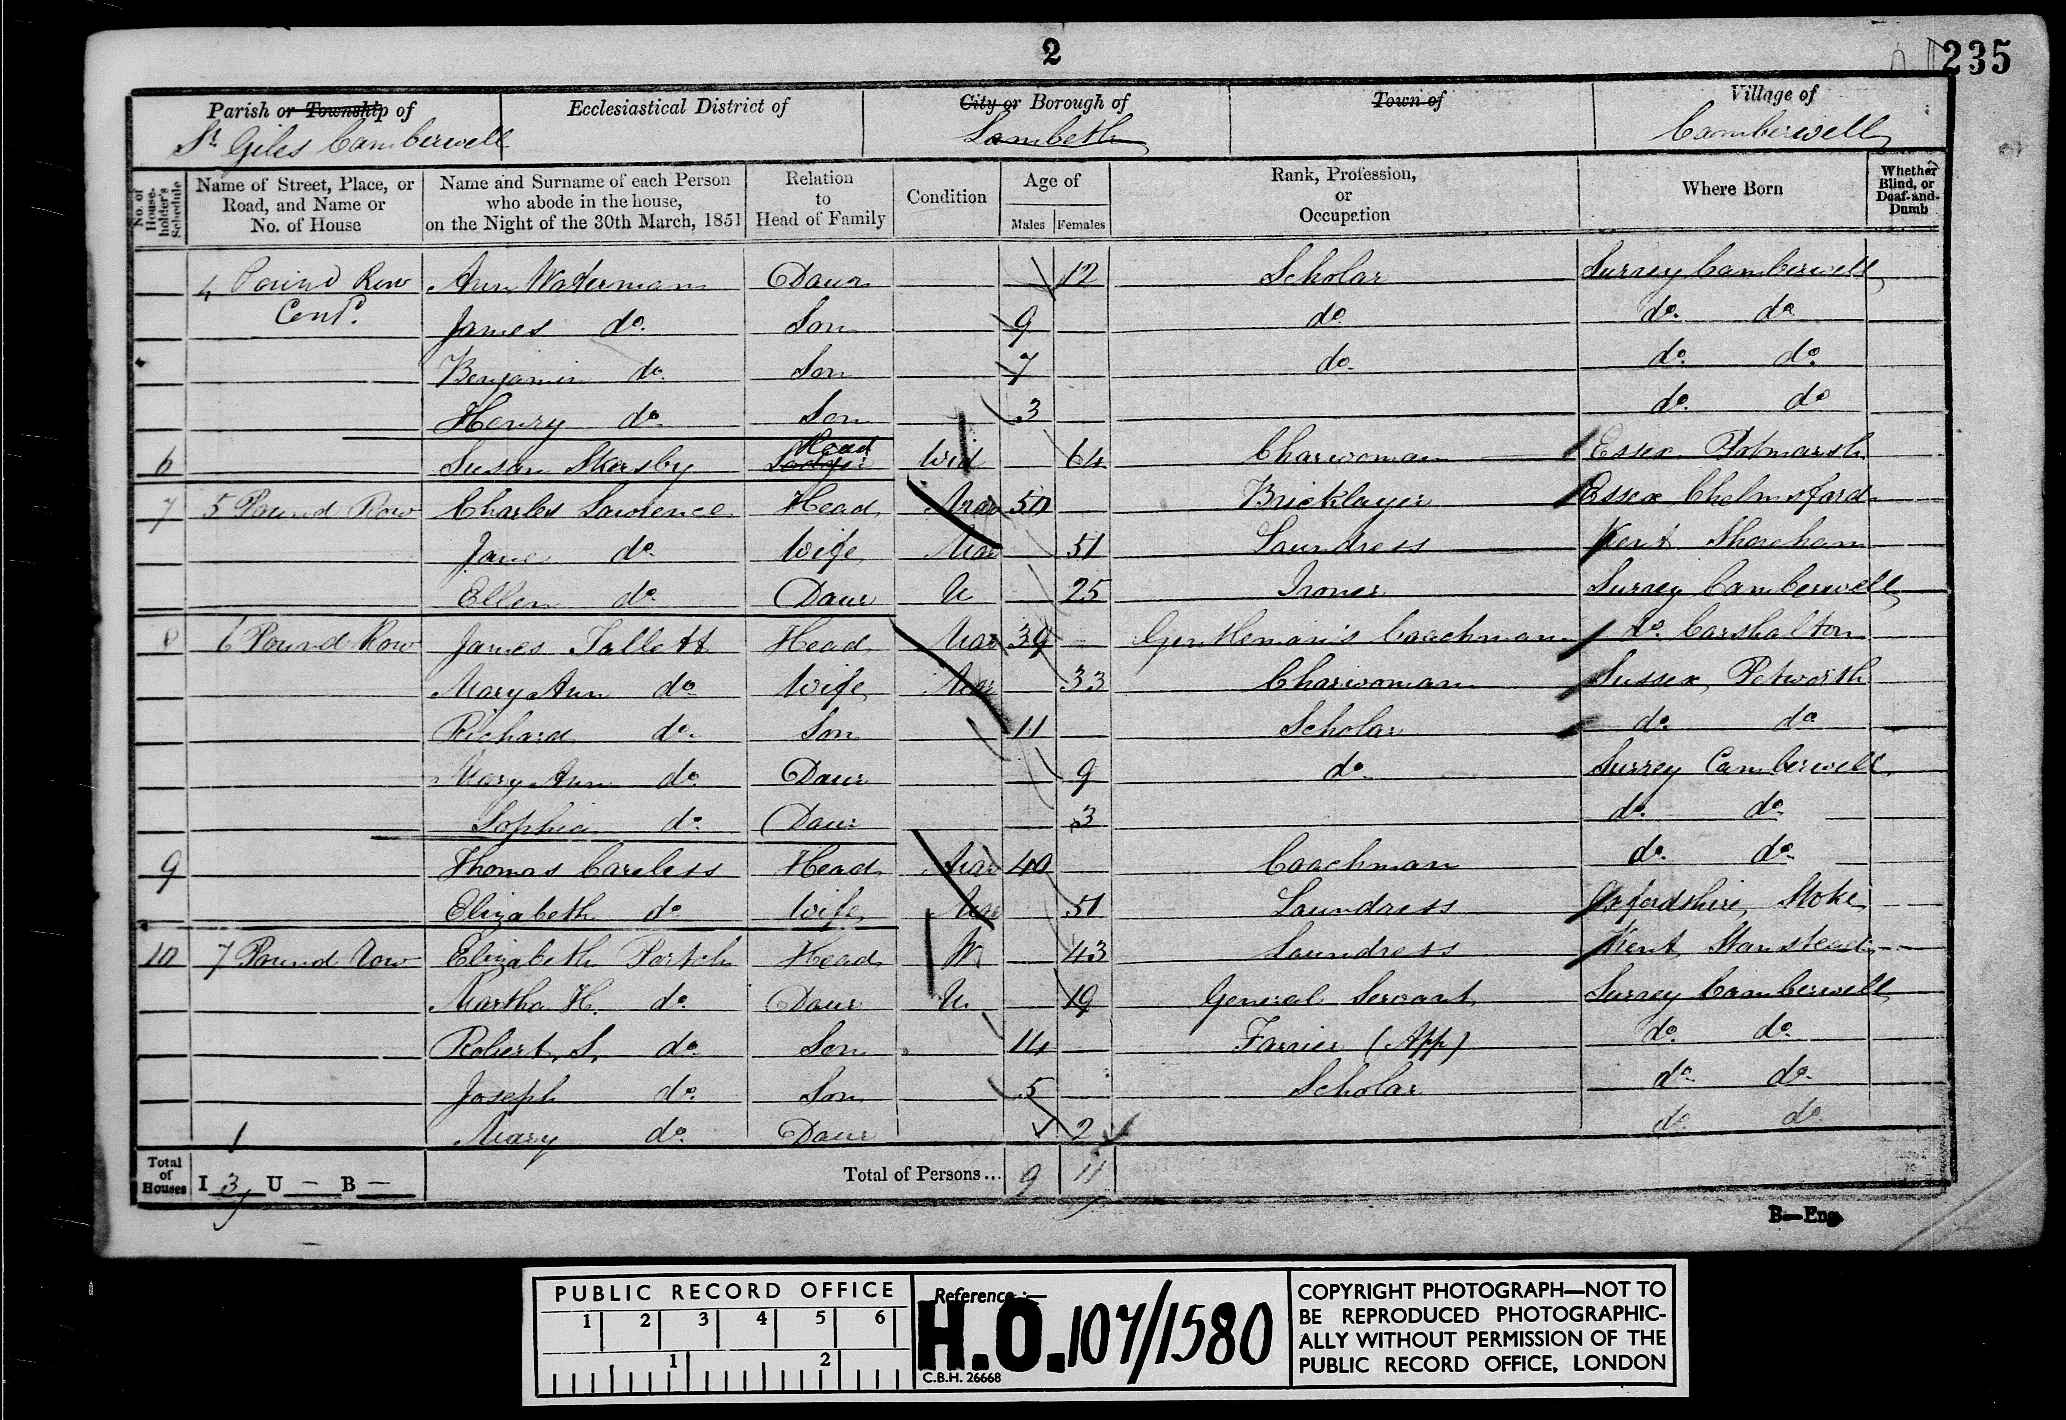 2
235
Parish or Township of
St Giles Camberwell
Ecclesiastical District of
City or Borough of
Lambeth
Town of
Village of
Camberwell
No. of House-holder's Schedule
Name of Street, Place, or Road, and Name or No. of House
Name and Surname of each Person who abode in the house, on the Night of the 30th March, 1851
Relation to Head of Family
Condition
Age of
Males Females
Rank, Profession, or Occupation
Where Born
Whether Blind, or Deaf-and-Dumb
4 Pound Row Ann Waterman Daur 12 Scholar Surrey Camberwell
Contd. James do. Son 9 do do. do
Benjamin do. Son 7 do do. do.
Henry do. Son 3 do. do
6 Susan Lodger Head Wid 64 Charwoman Essex
7 5 Pound Row Charles Lawrence Head Mar 50 Bricklayer Essex Chelmsford
Jane do. Wife Mar 51 Laundress Kent Shoreham
Ellen do. Daur U 25 Ironer Surrey Camberwell
8 6 Pound Row James Tallett Head Mar 39 Gentleman's Coachman do. Carshalton
Mary Ann do. Wife Mar 33 Charwoman Sussex, Petworth
Richard do. Son 11 Scholar do. do.
Mary Ann do. Daur 9 do. Surrey Camberwell
Sophia do. Daur 3 do. do.
9 Thomas Careless Head Mar 40 Coachman do. do.
Elizabeth do Wife Mar 51 Laundress Oxfordshire, Stoke
10 7 Pound Row Elizabeth Head W 43 Laundress Kent, Stanstead
Martha H. do. Daur U 19 General Servant Surrey Camberwell
Robert S. do. Son 14 Farrier (App) do. do.
Joseph do. Son 5 Scholar do. do.
1 Mary do. Daur 2 do do
Total of Houses I 3 U – B –
Total of Persons... 9 11
B—Eng.
PUBLIC RECORD OFFICE
1 2 3 4 5 6
1 2
Reference:—
H.O. 107/1580
C.B.H. 26668
COPYRIGHT PHOTOGRAPH—NOT TO
BE REPRODUCED PHOTOGRAPHIC-
ALLY WITHOUT PERMISSION OF THE
PUBLIC RECORD OFFICE, LONDON